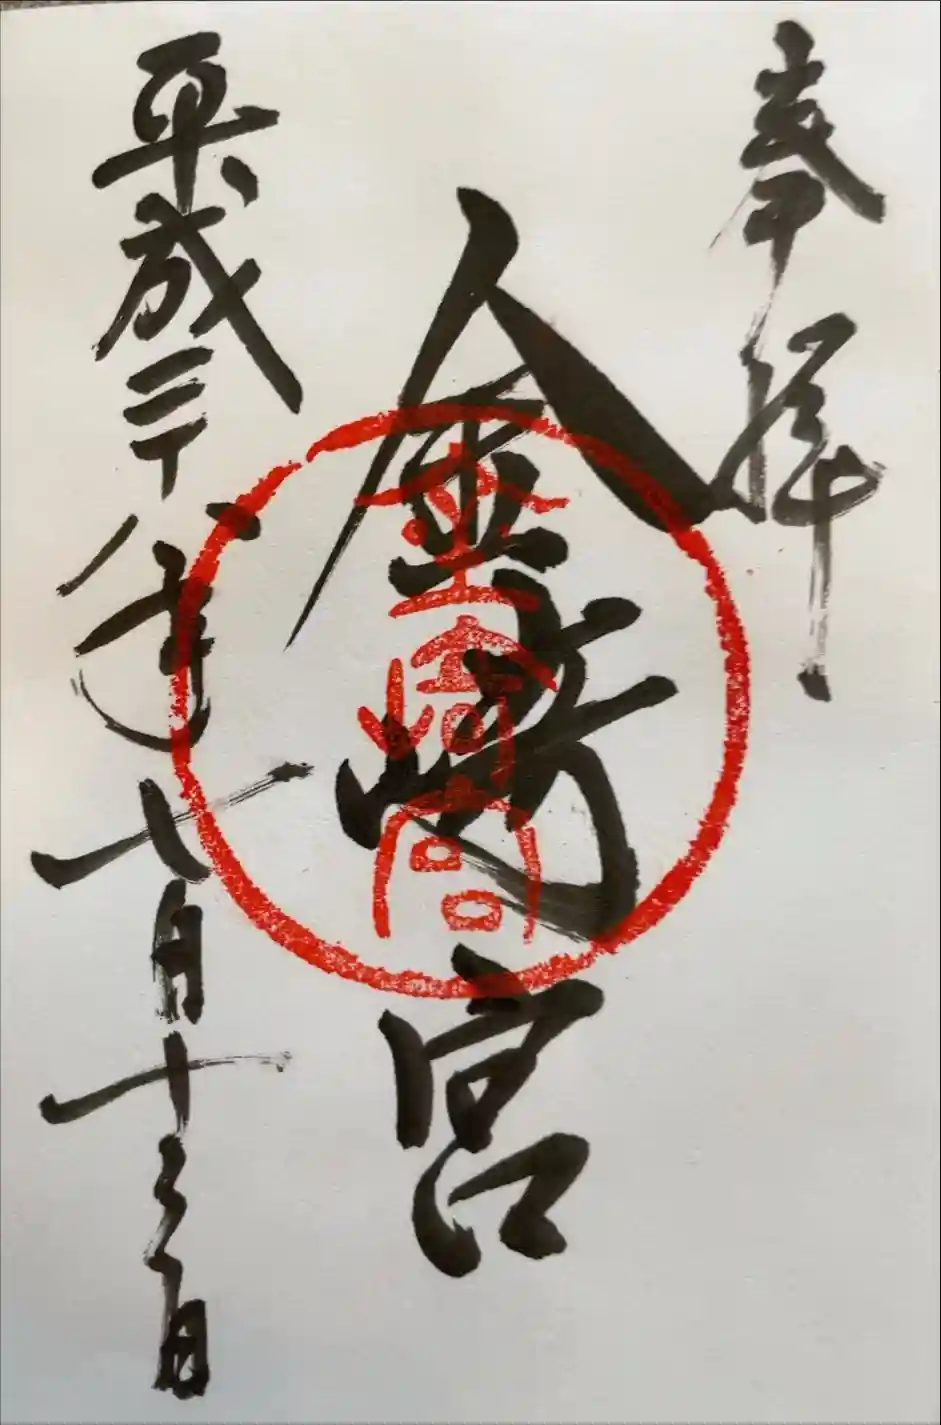 奉拝
金崎宮
金崎宮
平成三十八年七月十三日